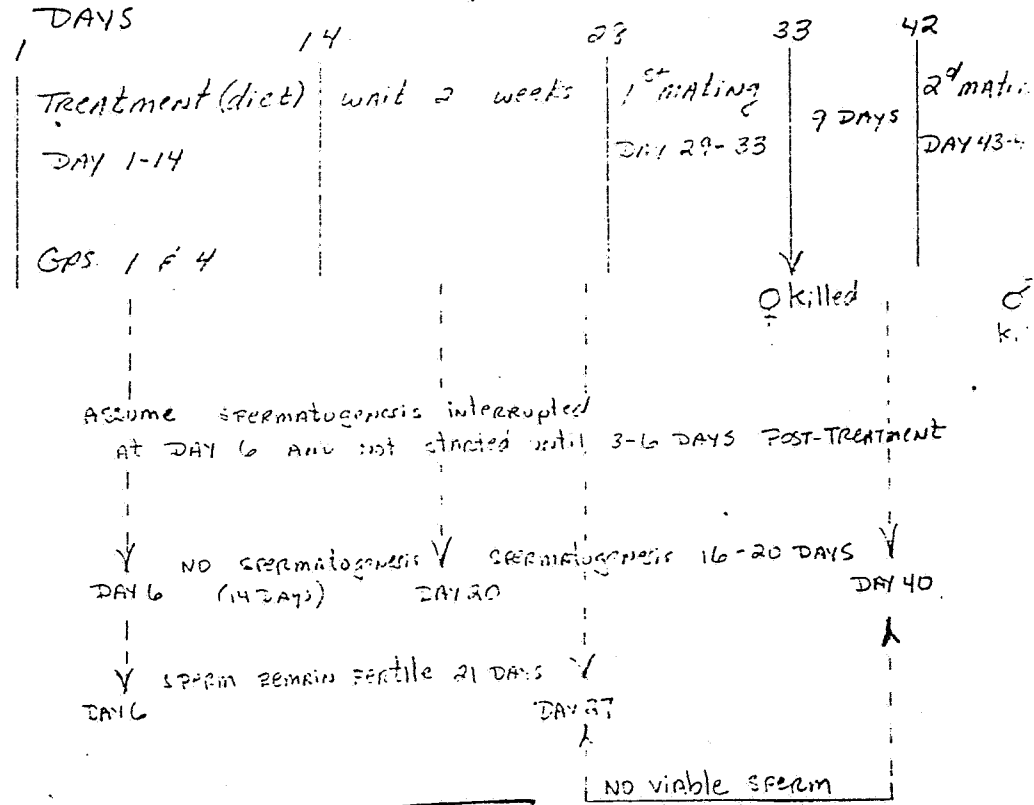 DAYS
1 14 28 33 42
Treatment (diet) wait 2 weeks 1st mating 9 DAYS 2d
DAY 1-14 DAY 29-33 DAY 43-
GPS. 1 & 4
♀ killed ♂
Assume spermatogenesis interrupted
at DAY 6 and not started until 3-6 DAYS POST-TREATMENT
NO spermatogenesis spermatogenesis 16-20 DAYS
DAY 6 (14 DAYS) DAY 20 DAY 40
sperm remain fertile 21 DAYS
DAY 6 DAY 27
NO viable sperm